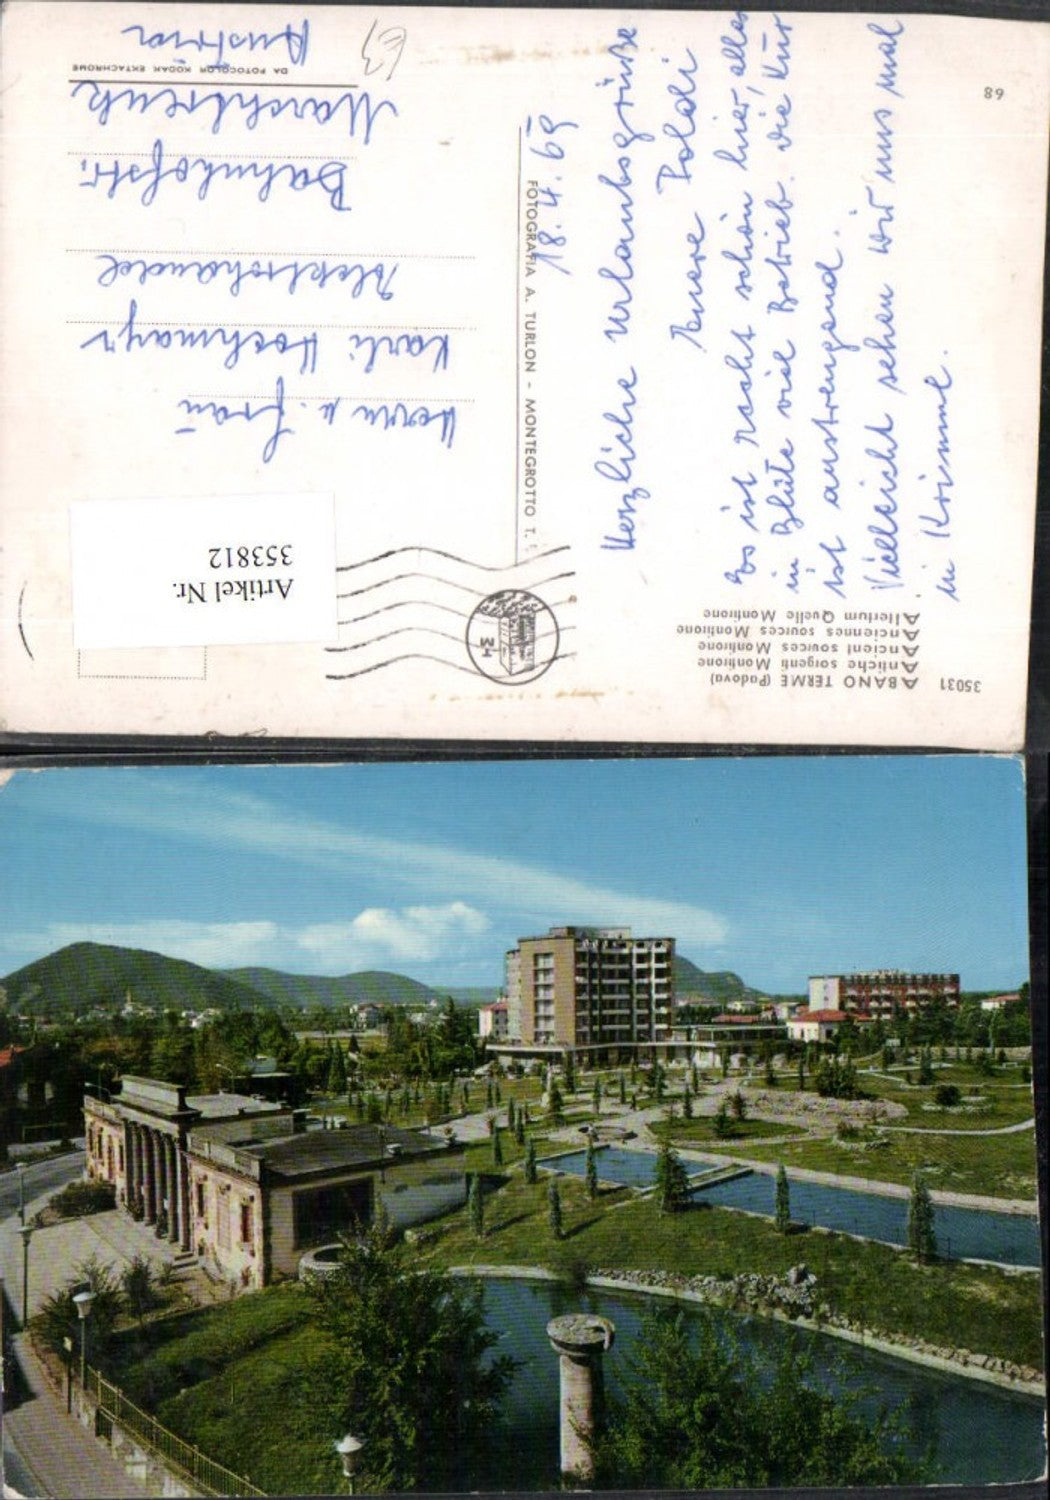 35031
ABANO TERME (Padova)
Antiche sorgenti Montirone
Ancient sources Montirone
Anciennes sources Montirone
Altertum Quelle Montirone
18.4.69
Herzliche Urlaubsgrüße
Eure Poldi
Es ist recht schön hier, alles
in Blüte viel Betrieb. die Kur
ist anstrengend.
Vielleicht sehen wir uns mal
in Krimml.
68
FOTOGRAFIA A. TURLON - MONTEGROTTO T.
TM
Artikel Nr.
353812
Herrn u. Frau
Karli Hochmayr
Elektrohandel
Bahnhofstr.
Marchtrenk
Austria
DA FOTOCOLOR KODAK EKTACHROME